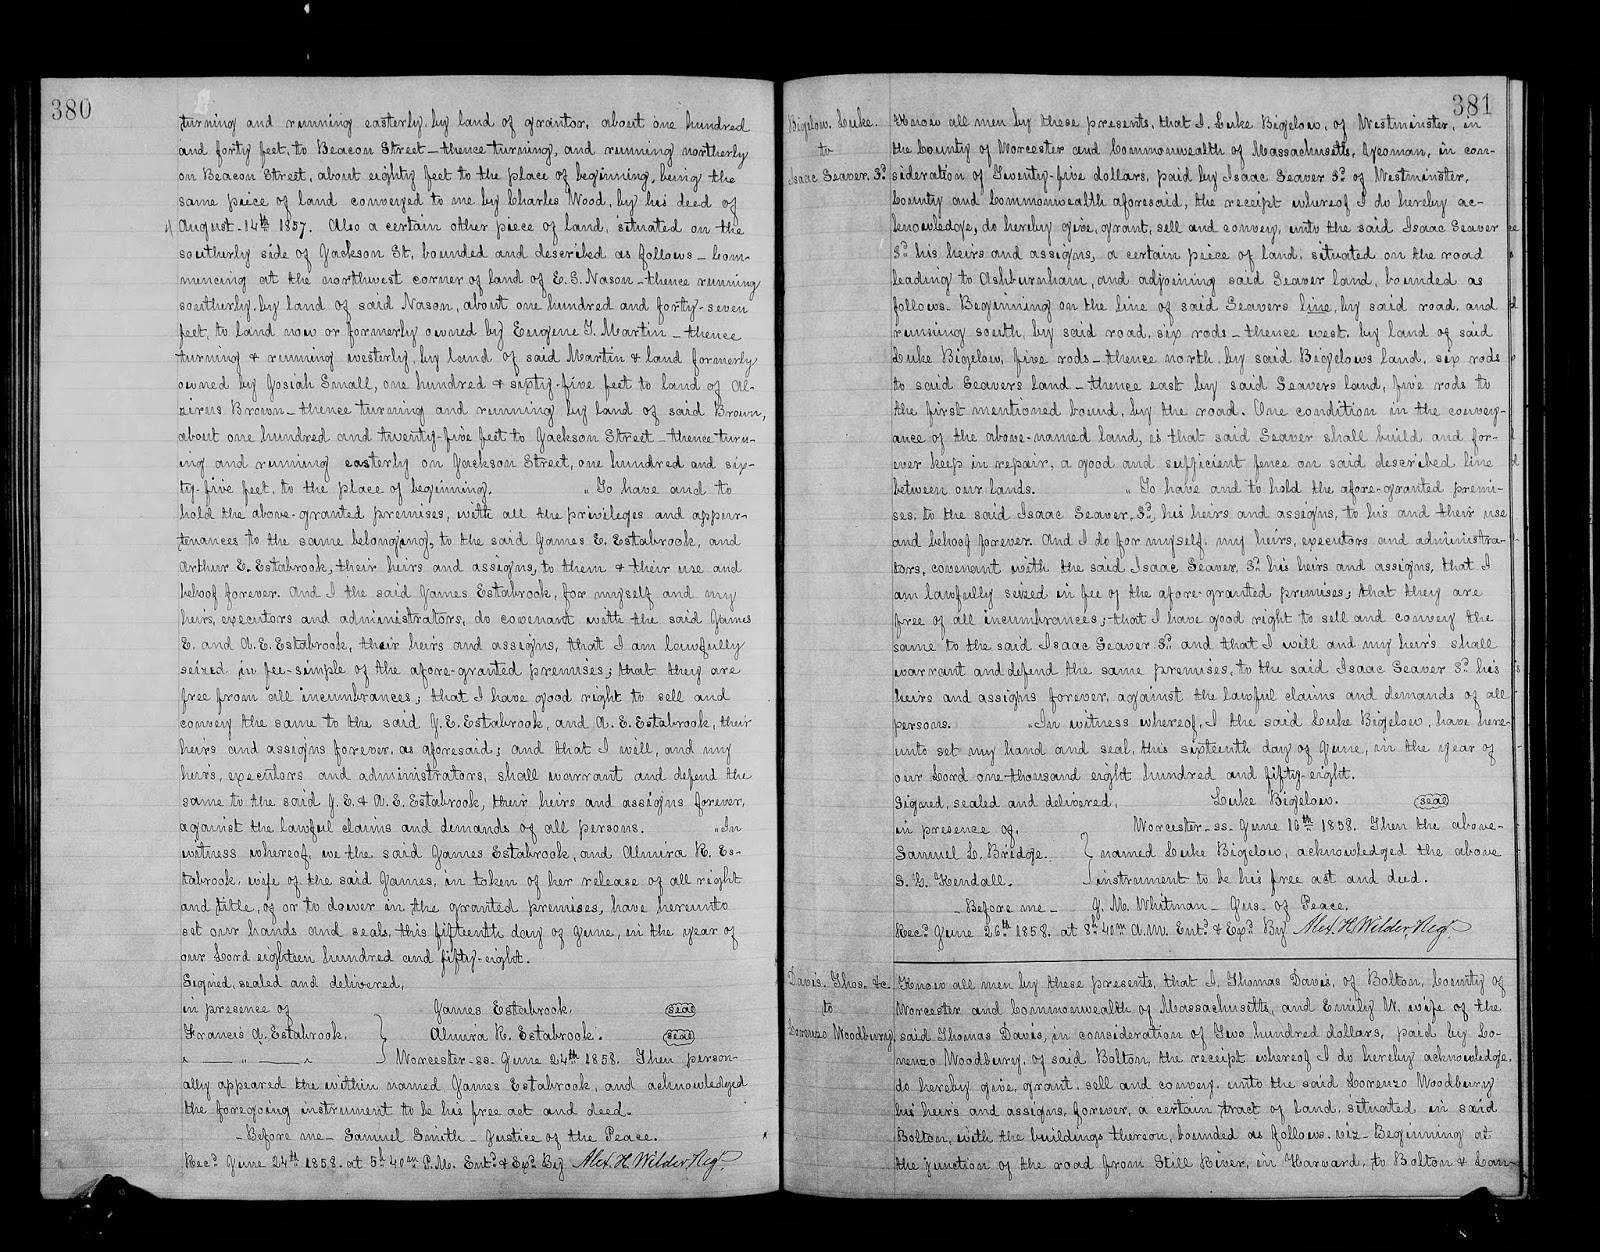 380
turning and running easterly, by land of grantor, about one hundred
and forty feet, to Beacon Street – thence turning, and running northerly
on Beacon Street, about eighty feet to the place of beginning, being the
same peice of land conveyed to me by Charles Wood, by his deed of
August 14th 1857. Also a certain other peice of land, situated on the
southerly side of Jackson St, bounded and described as follows – Com-
mencing at the northwest corner of land of E. S. Nason – thence running
southerly, by land of said Nason, about one hundred and forty-seven
feet, to land now or formerly owned by Eugene T. Martin – thence
turning & running westerly, by land of said Martin & land formerly
owned by Josiah Small, one hundred & sixty-five feet to land of Al-
zirus Brown – thence turning and running by land of said Brown,
about one hundred and twenty-five feet to Jackson Street – thence turn-
ing and running easterly on Jackson Street, one hundred and six-
ty-five feet, to the place of beginning. " To have and to
hold the above-granted premises, with all the privileges and appur-
tenances to the same belonging, to the said James E. Estabrook, and
Arthur E. Estabrook, their heirs and assigns, to them & their use and
behoof forever. And I the said James Estabrook, for myself and my
heirs, executors and administrators, do covenant with the said James
E. and A. E. Estabrook, their heirs and assigns, that I am lawfully
seized in fee-simple of the afore-granted premises; that they are
free from all incumbrances; that I have good right to sell and
convey the same to the said J. E. Estabrook, and A. E. Estabrook, their
heirs and assigns forever, as aforesaid; and that I will, and my
heirs, executors and administrators, shall warrant and defend the
same to the said J. E. & A. E. Estabrook, their heirs and assigns forever,
against the lawful claims and demands of all persons. " In
witness whereof, we the said James Estabrook, and Almira R. Es-
tabrook, wife of the said James, in token of her release of all right
and title, of or to dower in the granted premises, have hereunto
set our hands and seals, this fifteenth day of June, in the year of
our Lord eighteen hundred and fifty-eight.
Signed, sealed and delivered,
in presence of James Estabrook, seal
Francis A. Estabrook. } Almira R. Estabrook. seal
" — " — " } Worcester-ss. June 24th 1858. Then person-
ally appeared the within named James Estabrook, and acknowledged
the foregoing instrument to be his free act and deed.
– Before me – Samuel Smith – Justice of the Peace.
Recd June 24th 1858. at 5h 40m P.M. Entd & Exd By Alex. H. Wilder, Regr.
381
Bigelow. Luke.
to
Isaac Seaver. 3d
Know all men by these presents, that I, Luke Bigelow, of Westminster, in
the County of Worcester and Commonwealth of Massachusetts, Yeoman, in con-
sideration of Seventy-five dollars, paid by Isaac Seaver 3d of Westminster,
County and Commonwealth aforesaid, the receipt whereof I do hereby ac-
knowledge, do hereby give, grant, sell and convey, unto the said Isaac Seaver
3d his heirs and assigns, a certain peice of land, situated on the road
leading to Ashburnham, and adjoining said Seaver land, bounded as
follows. Beginning on the line of said Seavers line, by said road, and
running south, by said road, six rods – thence west, by land of said
Luke Bigelow, five rods – thence north, by said Bigelows land, six rods
to said Seavers land – thence east by said Seavers land, five rods to
the first mentioned bound, by the road. One condition in the convey-
ance of the above-named land, is that said Seaver shall build and for-
ever keep in repair, a good and sufficient fence on said described line
between our lands. " To have and to hold the afore-granted premi-
ses, to the said Isaac Seaver, 3d, his heirs and assigns, to his and their use
and behoof forever. And I do for myself, my heirs, executors and administra-
tors, covenant with the said Isaac Seaver, 3d his heirs and assigns, that I
am lawfully seized in fee of the afore-granted premises; that they are
free of all incumbrances; that I have good right to sell and convey the
same to the said Isaac Seaver 3d and that I will and my heirs shall
warrant and defend the same premises, to the said Isaac Seaver 3d his
heirs and assigns forever, against the lawful claims and demands of all
persons. " In witness whereof, I the said Luke Bigelow, have here-
unto set my hand and seal, this sixteenth day of June, in the year of
our Lord one thousand eight hundred and fifty-eight.
Signed, sealed and delivered, Luke Bigelow. seal
in presence of, Worcester-ss. June 16th 1858. Then the above-
Samuel L. Bridge. } named Luke Bigelow, acknowledged the above
S. G. Kendall. } instrument to be his free act and deed.
– Before me – J. M. Whitman – Jus- of Peace.
Recd June 26th 1858. at 8h 40m A.M. Entd & Exd By Alex. H. Wilder, Regr.
Davis. Thos. &c.
to
Lorenzo Woodbury
Know all men by these presents, that I, Thomas Davis, of Bolton, County of
Worcester and Commonwealth of Massachusetts, and Emily W. wife of the
said Thomas Davis, in consideration of Two hundred dollars, paid by Lo-
renzo Woodbury, of said Bolton, the receipt whereof I do hereby acknowledge,
do hereby give, grant, sell and convey, unto the said Lorenzo Woodbury
his heirs and assigns, forever, a certain tract of land, situated in said
Bolton, with the buildings thereon, bounded as follows. viz – Beginning at
the junction of the road from Still River, in Harvard, to Bolton & Lan-